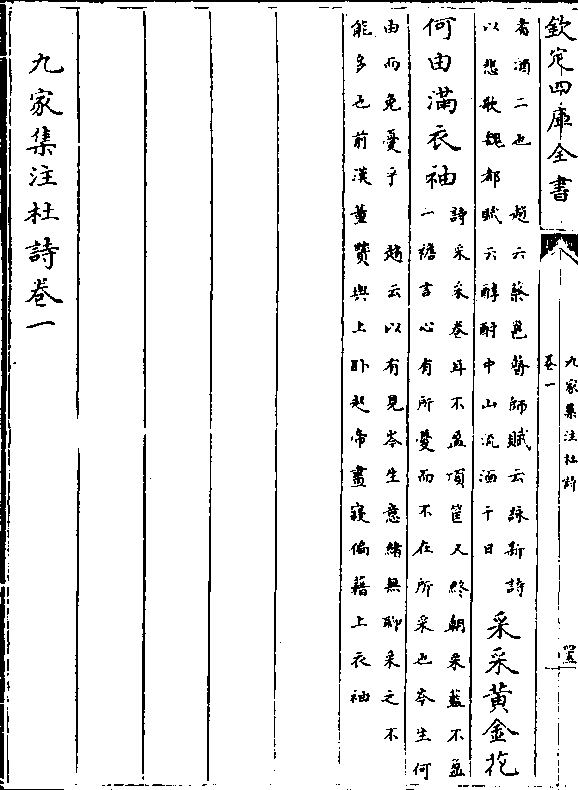 欽定四庫全書
九家集注杜詩
卷一
者酒二也　趙云蔡邕瞽師賦云詠新詩
以悲歌魏都賦云醇酎中山流湎千日
采采黃金花
何由滿衣袖
詩采采卷耳不盈頃筐又終朝采藍不盈
一襜言心有所憂而不在所采也岑生何
由而免憂乎　趙云以有見岑生意緒無聊采之不
能多也前漢董賢與上卧起帝晝寢偏藉上衣袖
九家集注杜詩卷一